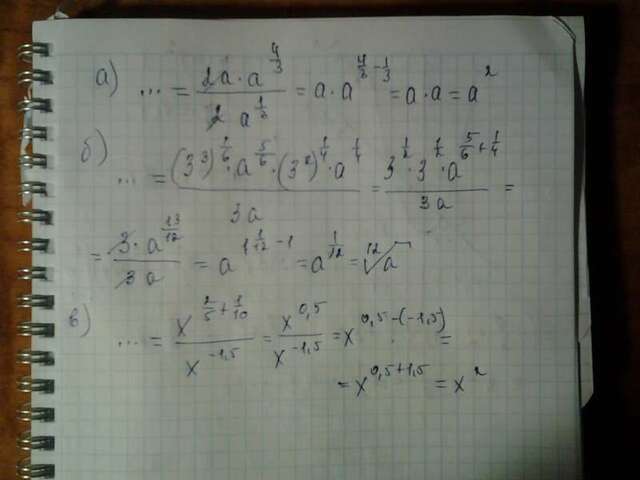 а) ... = 2a · a^(4/3) / 2 a^(1/3) = a · a^(4/3 - 1/3) = a · a = a^2
б) ... = (3^3)^(1/6) · a^(5/6) · (3^2)^(1/4) · a^(1/4) / 3a = 3^(1/2) · 3^(1/2) · a^(5/6 + 1/4) / 3a =
= 3 · a^(13/12) / 3a = a^(1 1/12 - 1) = a^(1/12) = ¹²√a
в) ... = x^(2/5 + 1/10) / x^(-1,5) = x^(0,5) / x^(-1,5) = x^(0,5-(-1,5)) =
= x^(0,5+1,5) = x^2